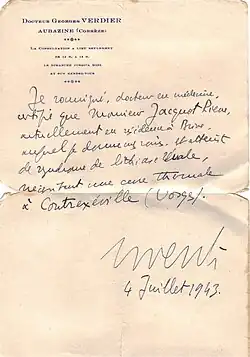 Docteur Georges VERDIER
AUBAZINE (Corrèze)
La Consultation a lieu seulement
le dimanche jusqu'à midi,
et sur rendez-vous
Je soussigné, docteur en médecine,
certifie que Monsieur Jacquot Pierre,
actuellement en résidence à Brive,
auquel je donne mes soins, est atteint
de syndrome de lithiase rénale,
nécessitant une cure thermale
à Contrexéville (Vosges).
4 Juillet 1943.